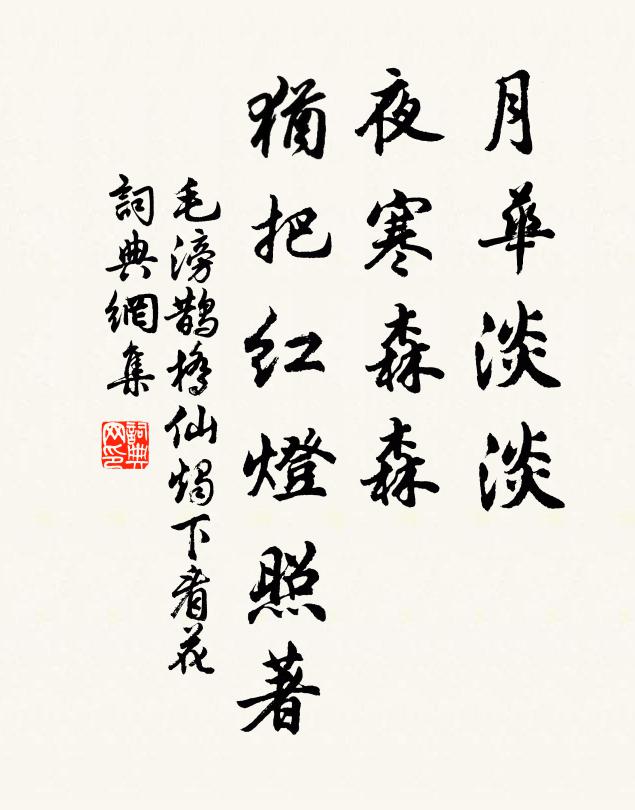 月華淡淡
夜寒森森
猶把紅燈照著
毛滂鵲橋仙燭下看花
詞典網集
詞典网印